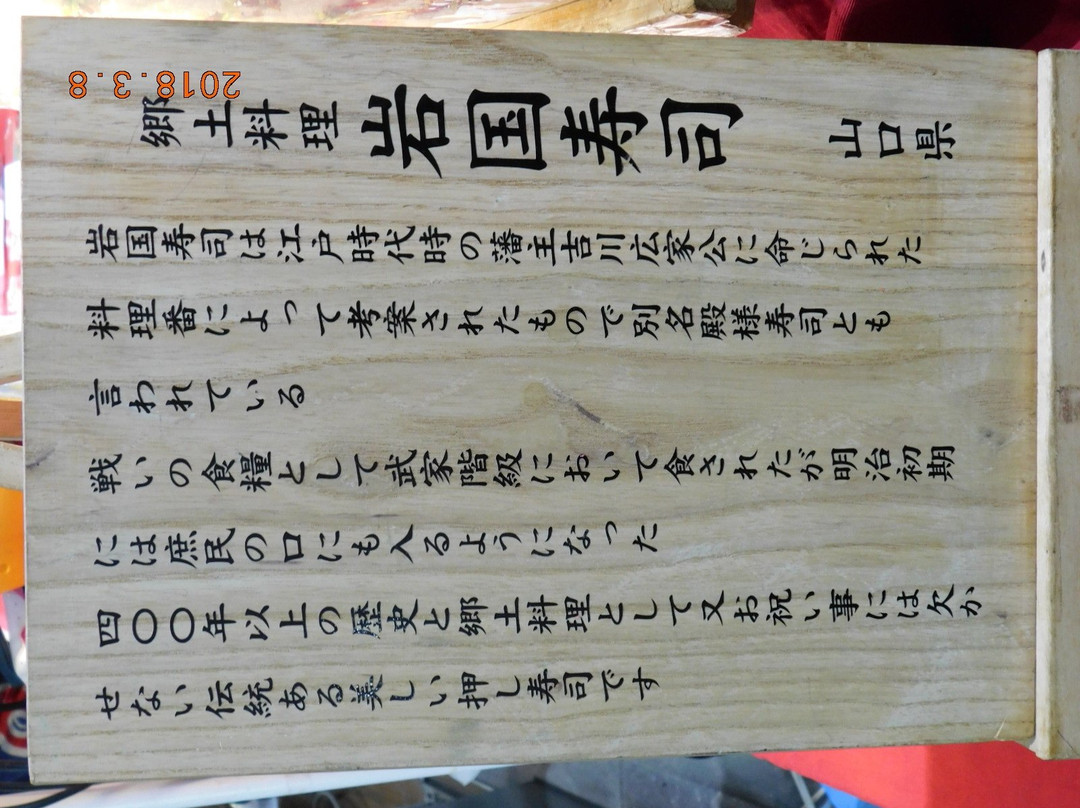 郷土料理 岩国寿司 山口県
岩国寿司は江戸時代時の藩主吉川広家公に命じられた
料理番によって考案されたもので別名殿様寿司とも
言われている
戦いの食糧として武家階級において食されたが明治初期
には庶民の口にも入るようになった
四〇〇年以上の歴史と郷土料理として又お祝い事には欠か
せない伝統ある美しい押し寿司です
2018.3.8